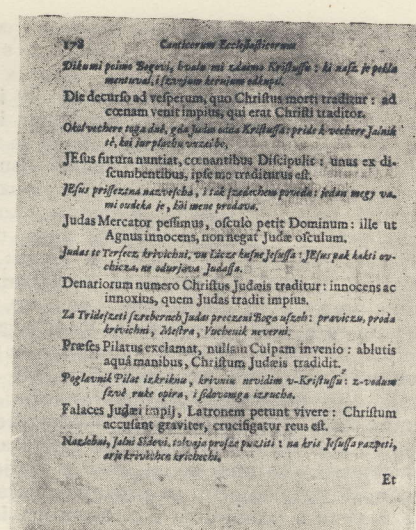 178 Canticorum Ecclesiasticorum
Dikumi peimo Bogovi, hvalu mi zdaimo Kristussu : ki nasz je pekla
mentuval, i szvojum kervjum odkupil.
Die decurso ad vesperum, quo Christus morti traditur : ad
cœnam venit impius, qui erat Christi traditor.
Okol vechere toga dnè, gda Judas odda Kristussa : pride k-vechere Jalnik
tè, koi
JEsus futura nuntiat, cœnantibus Discipulis : unus ex di-
scumbentibus, ipse me traditurus est.
JEsus prissezna nazveschа, i tak szadechem poveda : jedan megy va-
mi ovdeka je, kòi mene prodava.
Judas Mercator pessimus, osculo petit Dominum : ille ut
Agnus innocens, non negat Judæ osculum.
Judas te Terszecz krivichni, vu Licze kusne Jesussa : JEsus pak kakti ov-
chicza, ne odurjava Judassa.
Denariorum numero Christus Judæis traditur : innocens ac
innoxius, quem Judas tradit impius.
Za Trideszeti szrebernih Judas preczeni Boga uszeh : praviczu, proda
krivichni, Mestra, Vuchenik neverni.
Præses Pilatus exclamat, nullam Culpam invenio : ablutis
aquâ manibus, Christum Judæis tradidit.
Poglavnik Pilat izkrikna, krivniu nevidim v-Kristussu : z-vodum
szvè ruke opira, i
Falaces Judæi impij, Latronem petunt vivere : Christum
accusant graviter, crucifigatur reus est.
Nazlobni, Jalni Sidovi, tolvaja prosze pusztiti : na kris Jesussa razpeti,
arje krivèchen krichechi.
Et